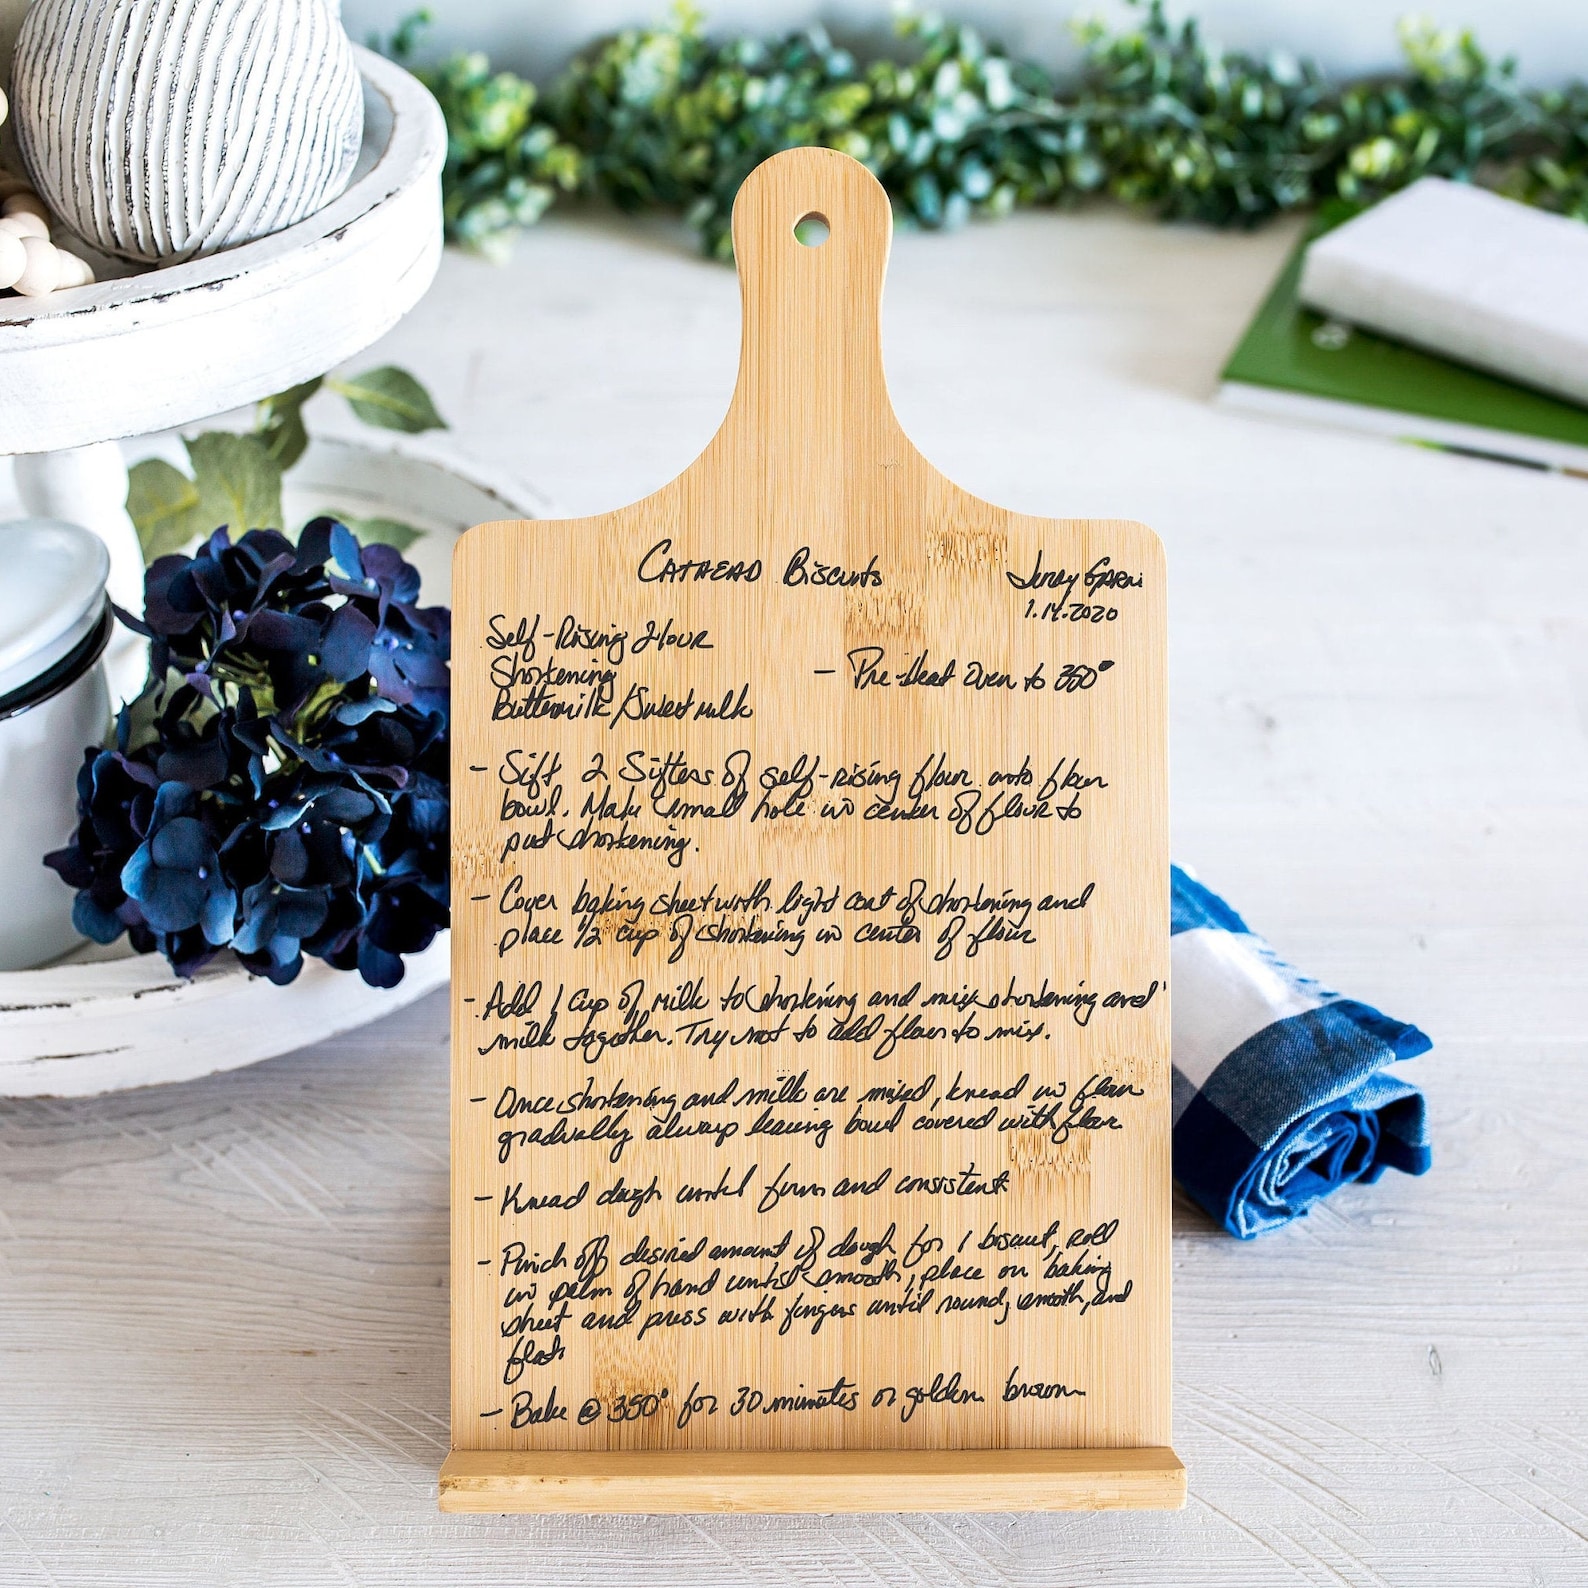 Cathead Biscuits
1.14.2020
Self-Rising Flour
Shortening
Buttermilk/Sweet milk
- Pre-Heat Oven to 350°
- Sift 2 Sifters of self-rising flour into flour
bowl. Make small hole in center of flour to
put shortening.
- Cover baking sheet with light coat of shortening and
place 1/2 cup of shortening in center of flour
- Add 1 cup of milk to shortening and mix shortening and
milk together. Try not to add flour to mix.
- Once shortening and milk are mixed, knead in flour
gradually always leaving bowl covered with flour
- Knead dough until firm and consistent
- Pinch off desired amount of dough for 1 biscuit, roll
in palm of hand until smooth, place on baking
sheet and press with fingers until round, smooth, and
flat
- Bake @ 350° for 30 minutes or golden brown